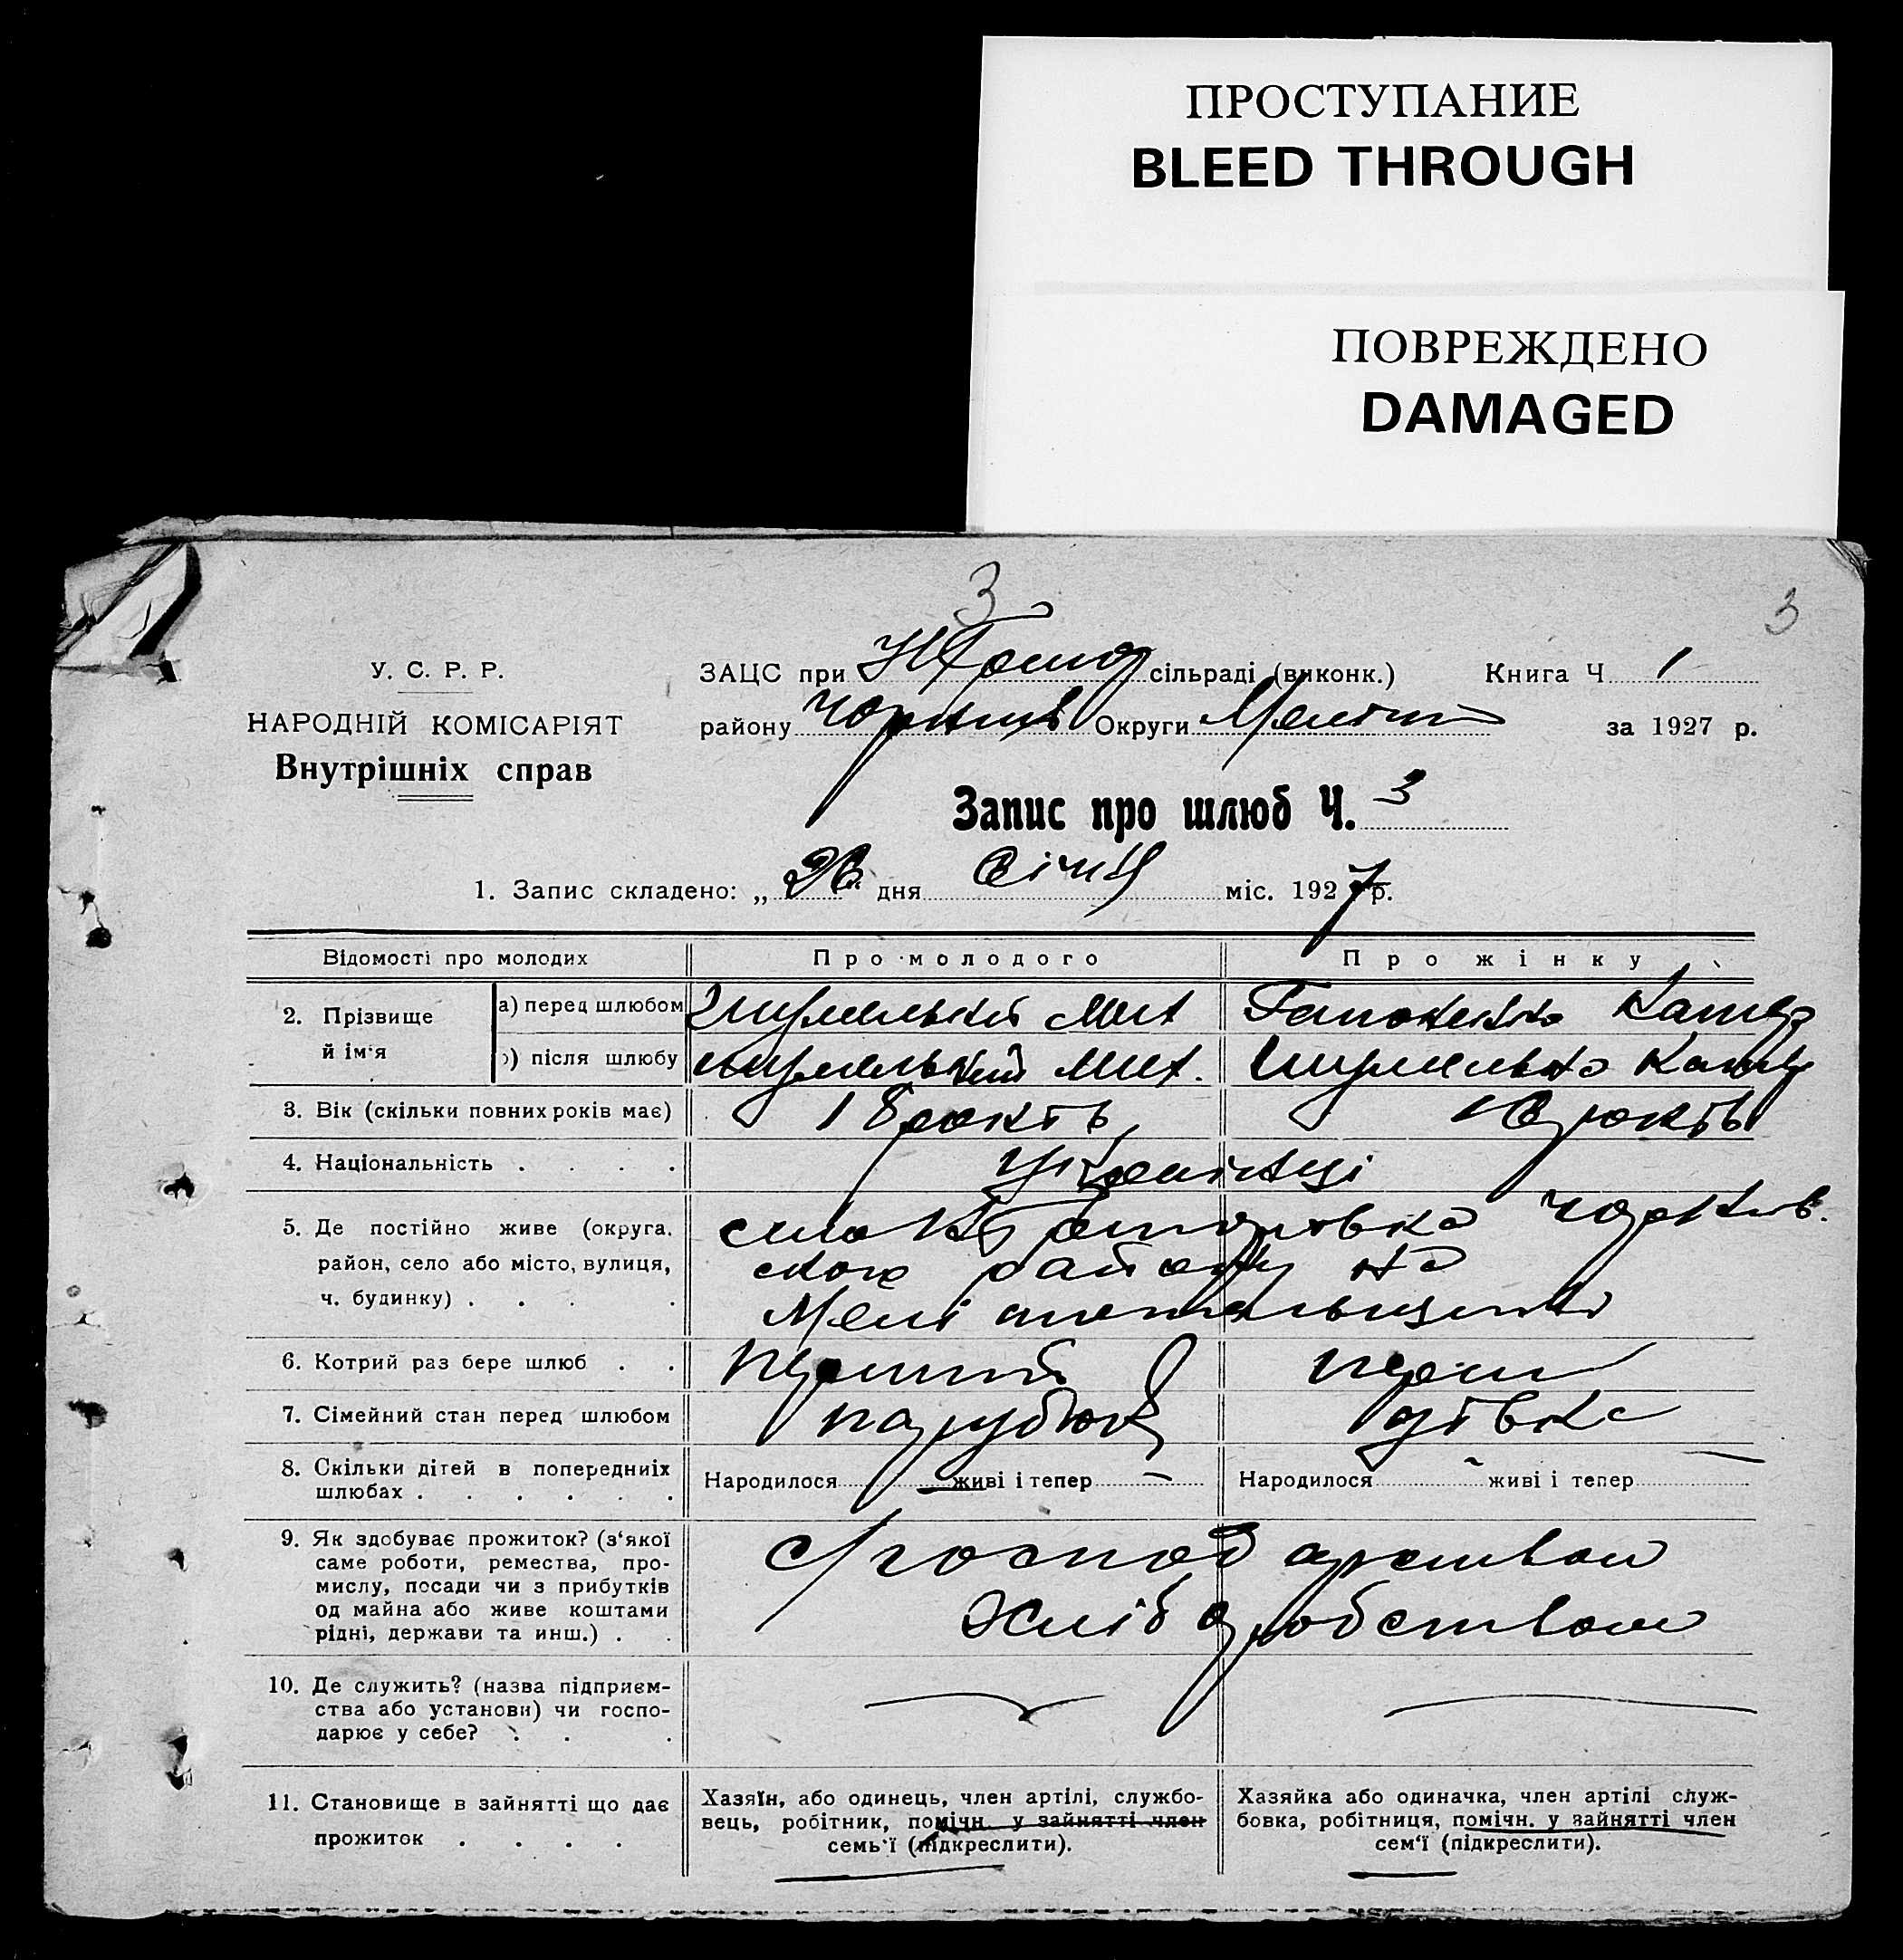 ПРОСТУПАНИЕ
BLEED THROUGH
ПОВРЕЖДЕНО
DAMAGED
3
3
У. С. Р. Р.
НАРОДНІЙ КОМІСАРІЯТ
Внутрішніх справ
ЗАЦС при сільраді (виконк.) Книга Ч 1
району Округи за 1927 р.
Запис про шлюб Ч. 3
1. Запис складено: „ 26 дня Січня міс. 1927 р.
Відомості про молодих Про молодого Про жінку
2. Прізвище й ім'я
а) перед шлюбом Мих
б) після шлюбу Мих.
3. Вік (скільки повних років має) 18 років років
4. Національність . . . . Українці
5. Де постійно живе (округа, район, село або місто, вулиця, ч. будинку) . . . .
село
ского району на
Мелітопольщині
6. Котрий раз бере шлюб . . перший перш
7. Сімейний стан перед шлюбом парубок дівка
8. Скільки дітей в попередниіх шлюбах . . . . . . Народилося живі і тепер — Народилося живі і тепер
9. Як здобуває прожиток? (з'якої саме роботи, ремества, промислу, посади чи з прибутків од майна або живе коштами рідні, держави та инш.) . .
с/господарством
хліборобством
10. Де служить? (назва підприємства або установи) чи господарює у себе? . . .
11. Становище в зайнятті що дає прожиток . . . .
Хазяїн, або одинець, член артілі, службовець, робітник, помічн. у зайнятті член семь'ї (підкреслити).
Хазяйка або одиначка, член артілі службовка, робітниця, помічн. у зайнятті член сем'ї (підкреслити).